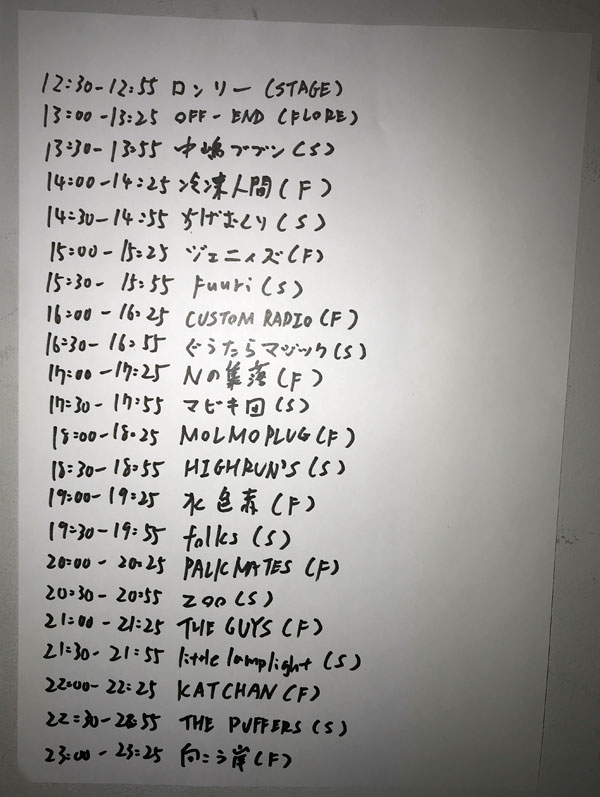 12:30-12:55 ロンリー(STAGE)
13:00-13:25 OFF-END(FLORE)
13:30-13:55 中嶋ブブン(S)
14:00-14:25 冷凍人間(F)
14:30-14:55 ちげむくり(S)
15:00-15:25 ジェニィズ(F)
15:30-15:55 Fuuri(S)
16:00-16:25 CUSTOM RADIO(F)
16:30-16:55 ぐうたらマジック(S)
17:00-17:25 Nの集落(F)
17:30-17:55 マビキ団(S)
18:00-18:25 MOLMOPLUG(F)
18:30-18:55 HIGHRUN'S(S)
19:00-19:25 水色素(F)
19:30-19:55 folks(S)
20:00-20:25 PALICMATES(F)
20:30-20:55 zoo(S)
21:00-21:25 THE GUYS(F)
21:30-21:55 little lamplight(S)
22:00-22:25 KATCHAN(F)
22:30-22:55 THE PUFFERS(S)
23:00-23:25 向こう岸(F)